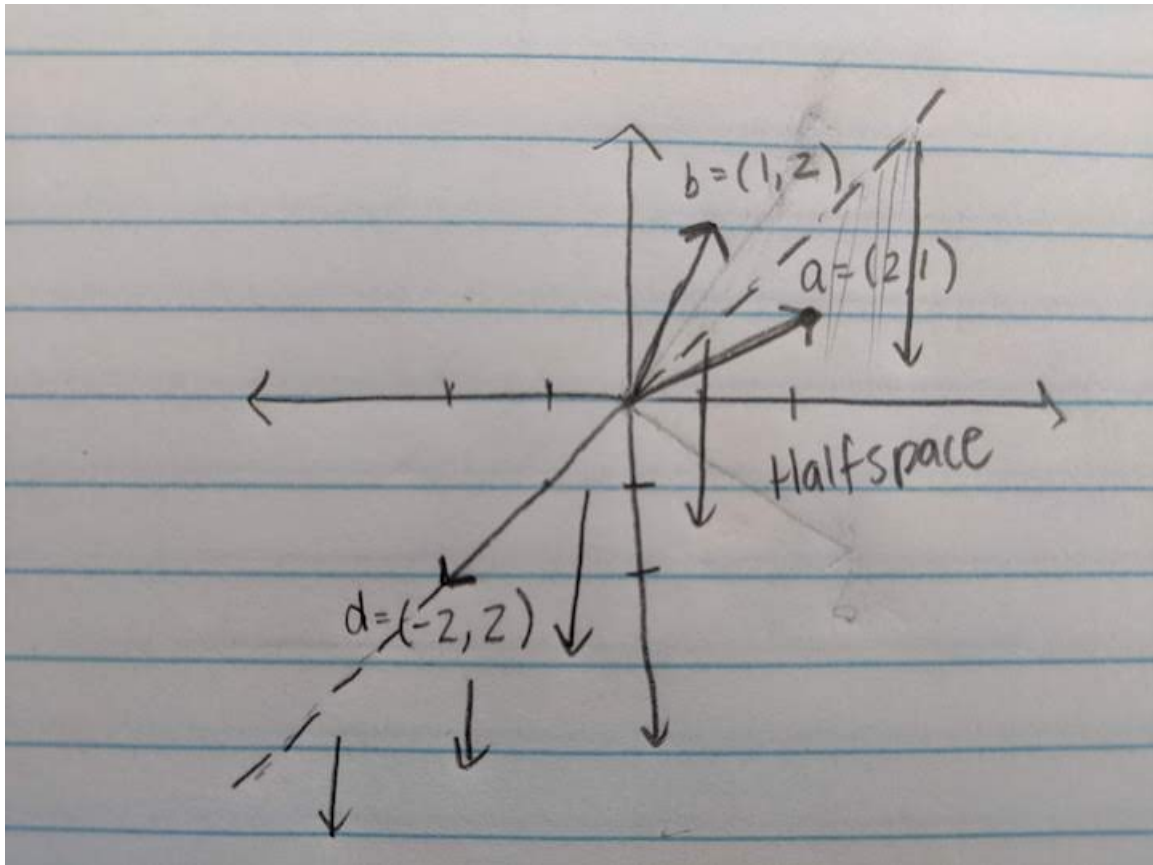 b=(1,2)
a=(2,1)
Halfspace
d=(-2,2)